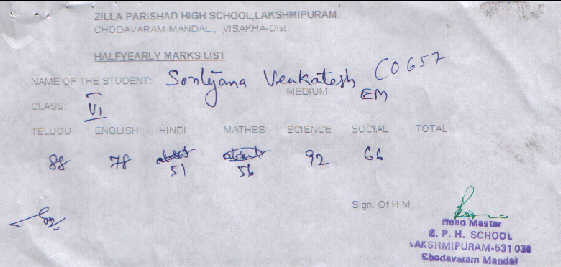 ZILLA PARISHAD HIGH SCHOOL,LAKSHMIPURAM.
CHODAVARAM-MANDAL., VISAKHA-Dist.
HALFYEARLY MARKS LIST
NAME OF THE STUDENT: Venkatesh C0657
CLASS: VI MEDIUM EM
TELUGU ENGLISH HINDI MATHES SCIENCE SOCIAL TOTAL
88 78 absent absent 92 66
51 56
Sign. Of H M
Head Master
Z. P. H. SCHOOL
LAKSHMIPURAM-531036
Chodavaram Mandal